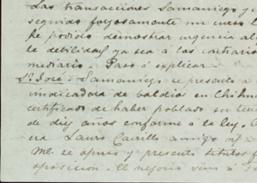 Las transacciones Samaniego y
seguido forzosamente un curso
he podido demostrar urgencia al
la debilidad ya sea á los contrarios
mediario. Paso á explicar
Sr. José Samaniego se presentó
indicadora de baldíos en Chihua
certificado de haber poblado en
de diez años conforme á la ley.
era Lauro Carrillo amigo
Ml. se apersonó y presentó títulos
oposición. El negocio vino á